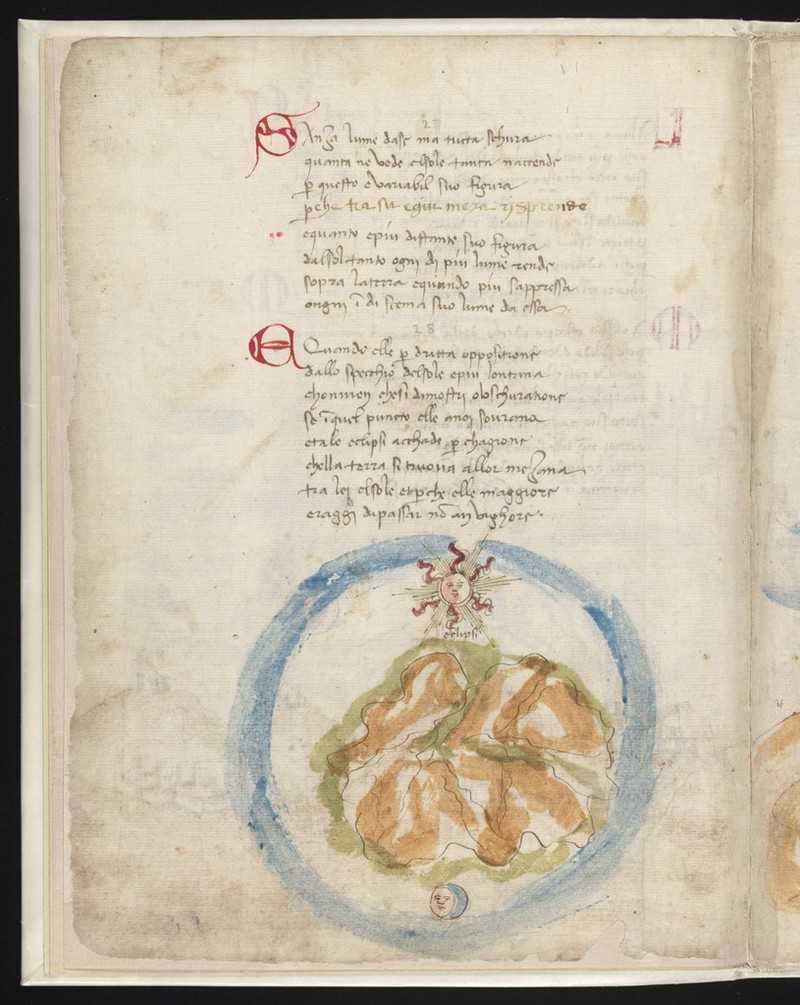 27
Sanza lume dase ma tutta schura
quanta ne vede elsole tanta naccende
p questo e variabil suo figura
pche tra su e qui meza risprende
equanto epiu distante suo figura
dalsol tanto ogni di piu lume rende
sopra laterra equando piu sappressa
ongni i di scema suo lume da essa
28
Quando elle p dritta oppositione
dallo specchio delsole epiu lontana
chonvien chesi dimostri obschuratione
se iquel puncto elle anoi sovrana
etale eclipsi acchade p chagione
chella terra si truova allor mezana
tra lei elsole etpche elle maggiore
eraggi dipassar no an vighore
eclipsi